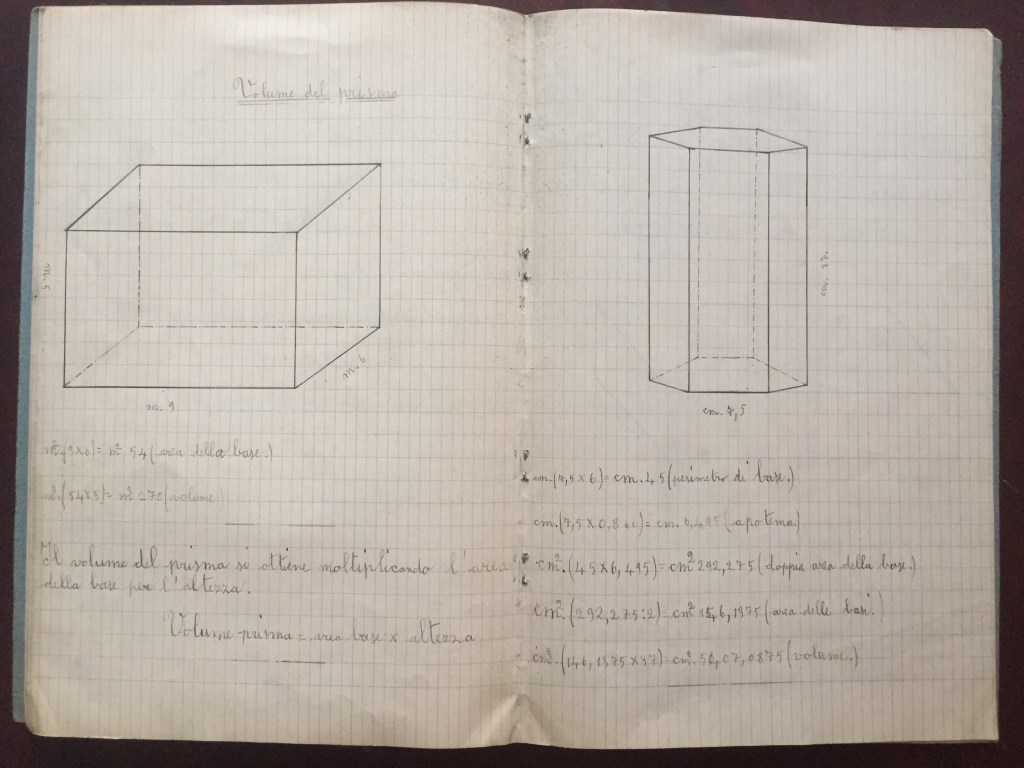 Volume del prisma
m. 5
m. 6
m. 9
m² (9x6)= m² 54 (area della base.)
(54x5)= 270 (volume)
Il volume del prisma si ottiene moltiplicando l'area
della base per l'altezza.
Volume prisma = area base x altezza
cm. 7,5
cm. (7,5 x 6)= cm. 45 (perimetro di base.)
cm. (7,5 x 0,866)= cm. 6,495 (apotema.)
cm². (45 x 6,495)= cm² 292,275 (doppia area della base.)
cm². (292,275:2)= cm² (area delle basi.)
(146,1375 x 37)= (volume.)